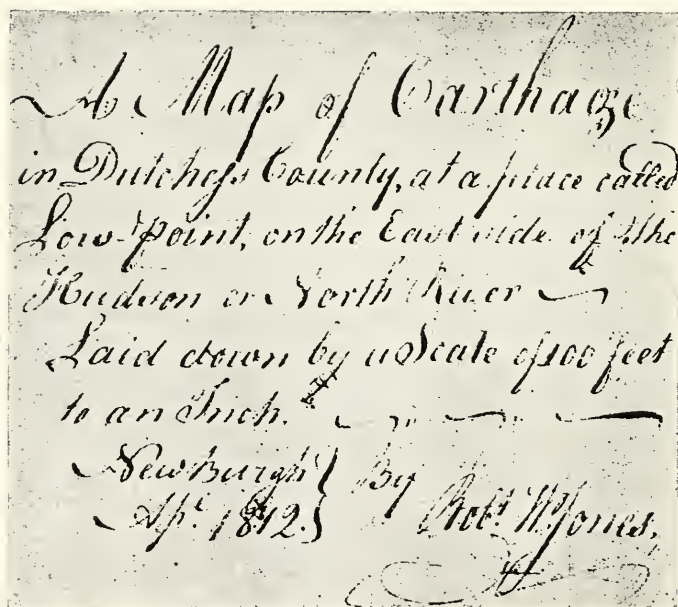 A Map of Carthage
in Dutchess County, at a place called
Low-Point, on the East side of the
Hudson or North River
Laid down by a Scale of 100 feet
to an Inch.
NewBurgh } By
Apl. 1812. } Robt. W. Jones.